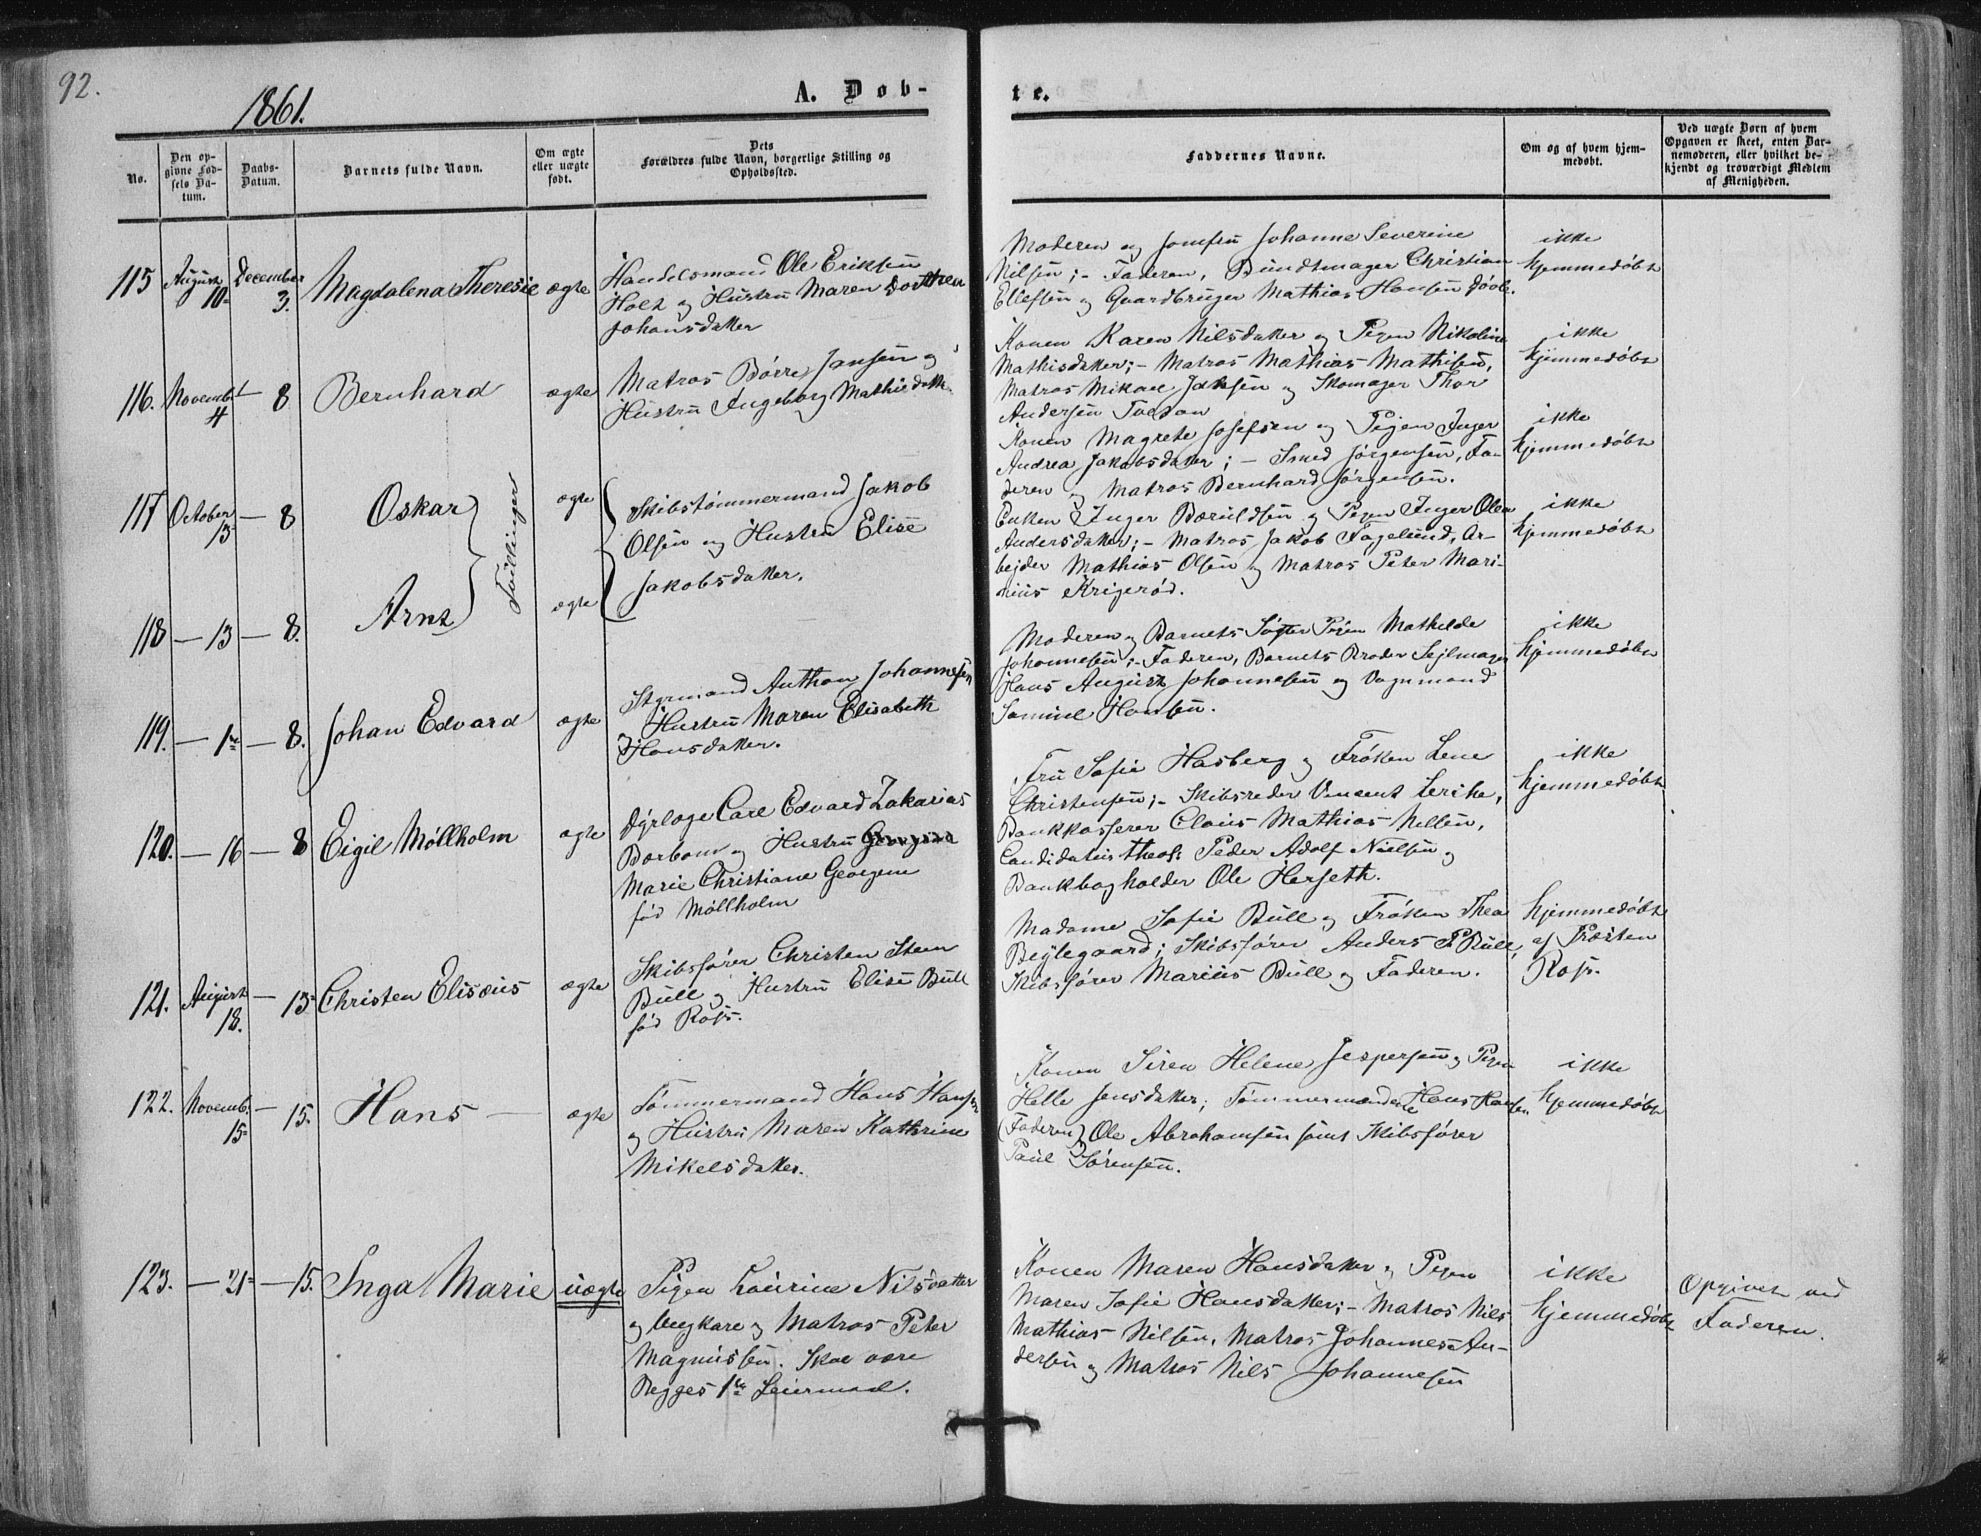 92.
1861.
A. Døb-
te.
No.
Den op-
givne Fød-
sels Da-
tum.
Daabs-
Datum.
Barnets fulde Navn.
Om ægte
eller uægte
født.
Dets
Forældres fulde Navn, borgerlige Stilling og
Opholdssted.
Faddernes Navne.
Om og af hvem hjem-
medøbt.
Ved uægte Børn af hvem
Opgaven er skeet, enten Bar-
nemoderen, eller hvilket be-
kjendt og troværdigt Medlem
af Menigheden.
115 August 10 December 3. Magdalena Theresie ægte
Handelsmand Ole Eriksen
Holt og Hustru Maren Dorthea
Johansdatter
Moderen og Jomfru Johanne Severine
Nilsen; - Faderen, Bundtmager Christian
Ellefsen og Gaardbruger Mathias Hansen
ikke
hjemmedøbt
116. Novembr 4 — 8 Bernhard ægte
Matros Børre Jansen og
Hustru Ingeborg Mathisdatter
Konen Karen Nilsdatter og Pigen Nikoline
Mathisdatter; - Matros Mathias Mathisen,
Matros Mikael Jansen og Skomager Thor
Andersen
ikke
hjemmedøbt
117 October 13 — 8 Oskar ægte
118 — 13 — 8. Arnt ægte
Tvillinger
Skibstømmermand Jakob
Olsen og Hustru Elise
Jakobsdatter.
Konen Magrete Josefsen og Pigen Inger
Andrea Jakobsdatter; - Smed Jørgensen, Fa-
deren og Matros Bernhard Jørgensen.
ikke
hjemmedøbt
Enken Inger Bæruldsen og Pigen Inger Olea
Andersdatter; - Matros Jakob Fagelund, Ar-
beider Mathias Olsen og Matros Peter Mari-
nius Krigerød.
ikke
hjemmedøbt
119. — 1 — 8. Johan Edvard ægte
Styrmand Anthon Johannesen
og Hustru Maren Elisabeth
Hansdatter.
Moderen og Barnets Søster Pigen Mathilde
Johannesen; - Faderen, Barnets Broder Sejlmager
Hans August Johannesen og Vognmand
Samuel Hansen.
ikke
hjemmedøbt
120. — 16 — 8 Eigil Møllholm ægte
Dyrlæge Carl Edvard Zakarias
Barbom og Hustru
Marie Christiane Georgine
fød Møllholm
Fru Sofie Hasberg og Frøken Lene
Christensen; - Skibsreder Vincent Lerche,
Bankkasserer Claus Mathias Nilsen,
Candidatus theol. Peder Adolf Nielsen og
Bankbogholder Ole Herseth.
ikke
hjemmedøbt
121. August 18. — 15. Christen Elisæus ægte
Skibsfører Christen Steen
Bull og Hustru Elise Bull
fød Ross.
Madame Sofie Bull og Frøken Thea
Bejlegaard; Skibsfører Anders P. Bull,
Skibsfører Marius Bull og Faderen.
hjemmedøbt
af Præsten
Ross.
122. Novemb. 15 — 15. Hans — ægte
Tømmermand Hans Hansen
og Hustru Maren Kathrine
Mikelsdatter.
Konen Siren Helene Jespersen og Pigen
Helle Jensdatter; Tømmermændene Hans Hansen
(Faderen) Ole Abrahamsen samt Skibsfører
Paul Sørensen.
ikke
hjemmedøbt
123. — 21 — 15. Inga Marie uægte
Pigen Laurine Nilsdatter
og Ungkarl og Matros Peter
Magnussen. Skal være
Begges 1ste Leiermaal.
Konen Maren Hansdatter og Pigen
Maren Sofie Hansdatter; - Matros Nils
Mathias Nilsen, Matros Johannes An-
dersen og Matros Nils Johannesen
ikke
hjemmedøbt
Opgivet ved
Faderen.